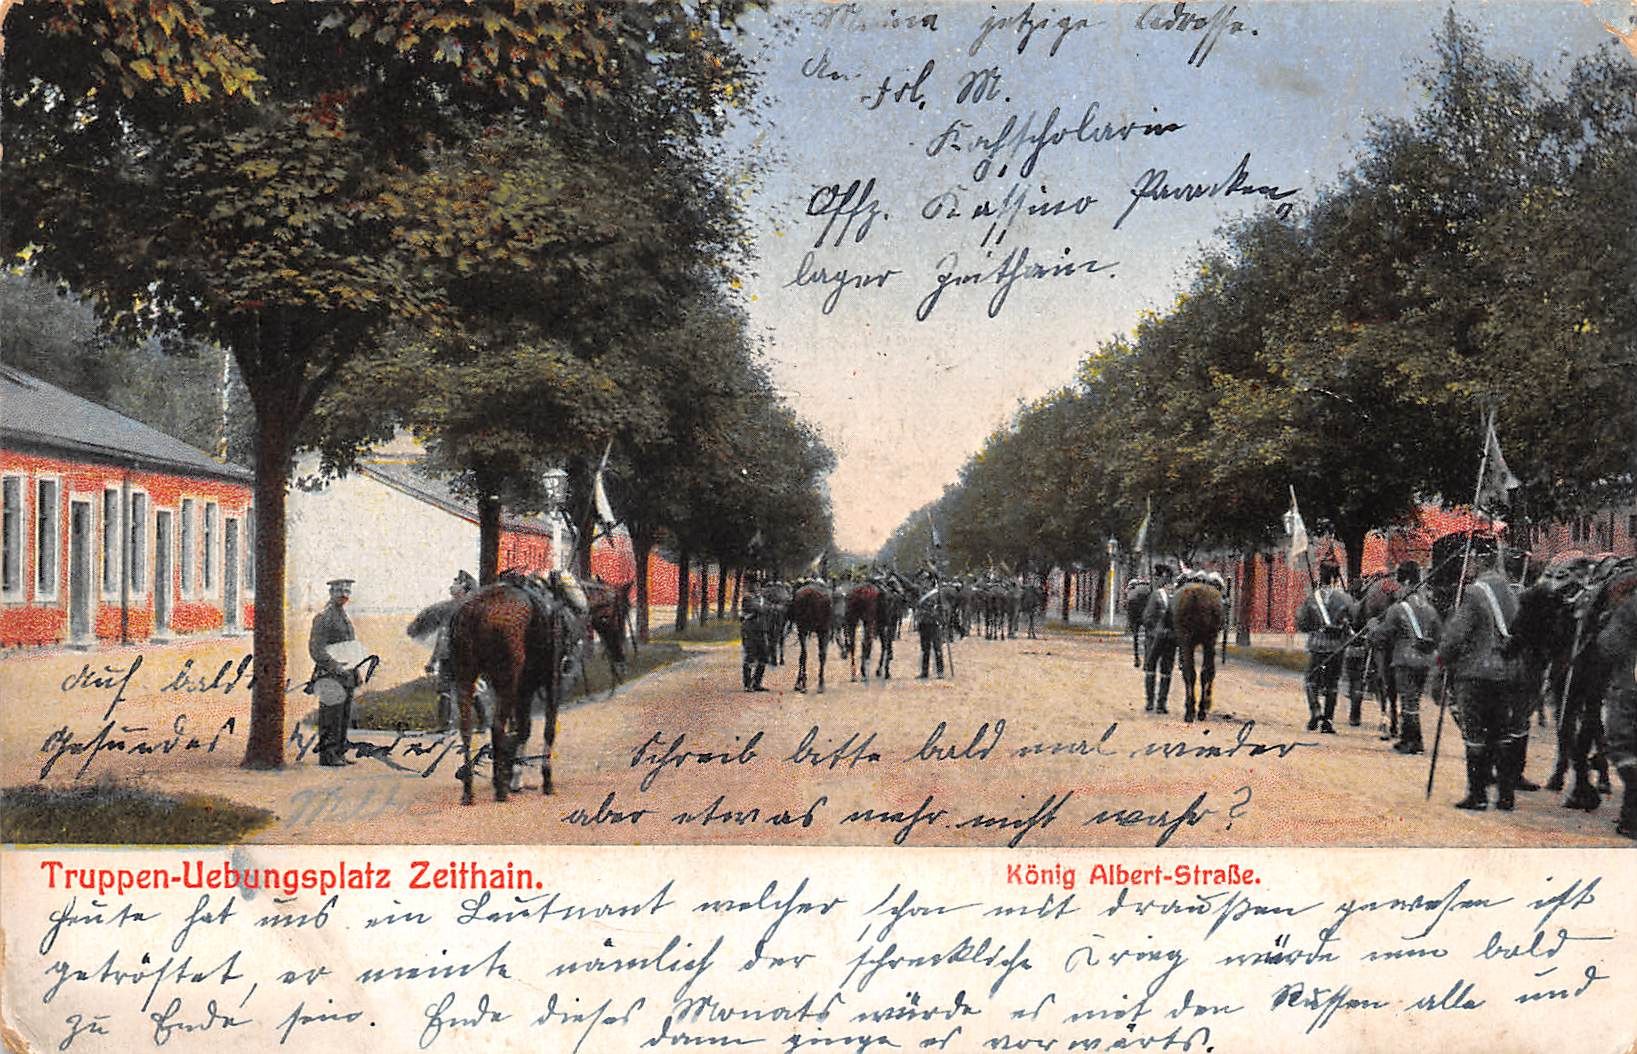 Meine jetzige Adresse.
An
Frl. M.
Kochscholarin
Offz. Kassino Baracken
lager Zeithain.
Auf baldiges
Gesundes Wiedersehen
Schreib bitte bald mal wieder
aber etwas mehr nicht wahr?
Truppen-Uebungsplatz Zeithain.
König Albert-Straße.
Heute hat uns ein Leutnant welcher schon mit draußen gewesen ist
getröstet, er meinte nämlich der schreckliche Krieg würde nun bald
zu Ende sein. Ende dieses Monats würde es mit den Russen alle und
dann ginge es vorwärts.